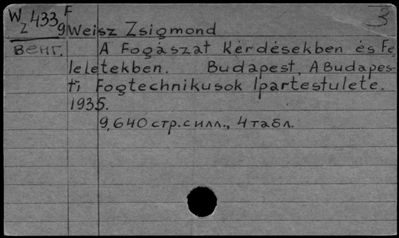 W 433 F
z 9 Weisz Zsigmond
3
венг. A Fogászat Kérdésekben és Fe-
leletekben. Budapest, A Budapes-
ti Fogtechnikusok Ipartestulete.
1935.
9, 640 стр. с илл., 4 табл.